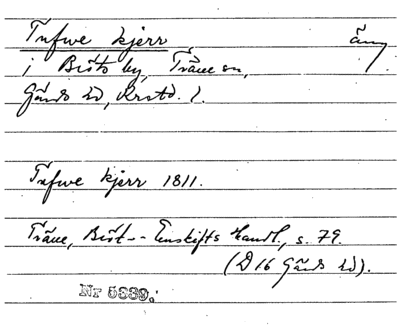 Tufwe kjerr äng
i Bösto by, Träne sn,
Gärds hd, Krstd. l.
Tufwe kjerr 1811.
Träne, Böst-- Enskifts Handl., s. 79.
(D16 Gärds hd).
Nr 5339.